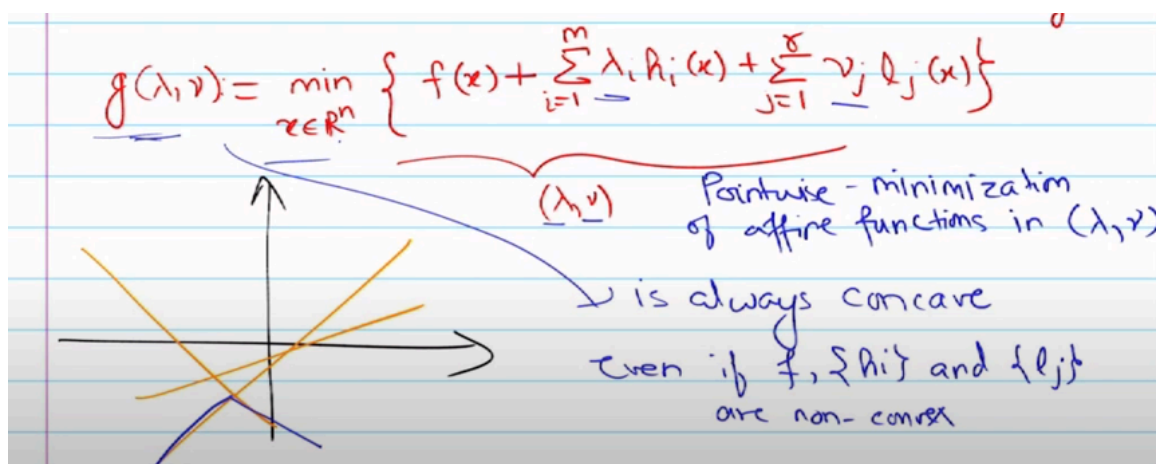 g(λ,ν) = min { f(x) + Σ λi hi(x) + Σ νj lj(x) }
m
r
x∈Rⁿ
i=1
j=1
(λ,ν)
Pointwise - minimization
of affine functions in (λ,ν)
is always concave
Even if f, {hi} and {lj}
are non-convex